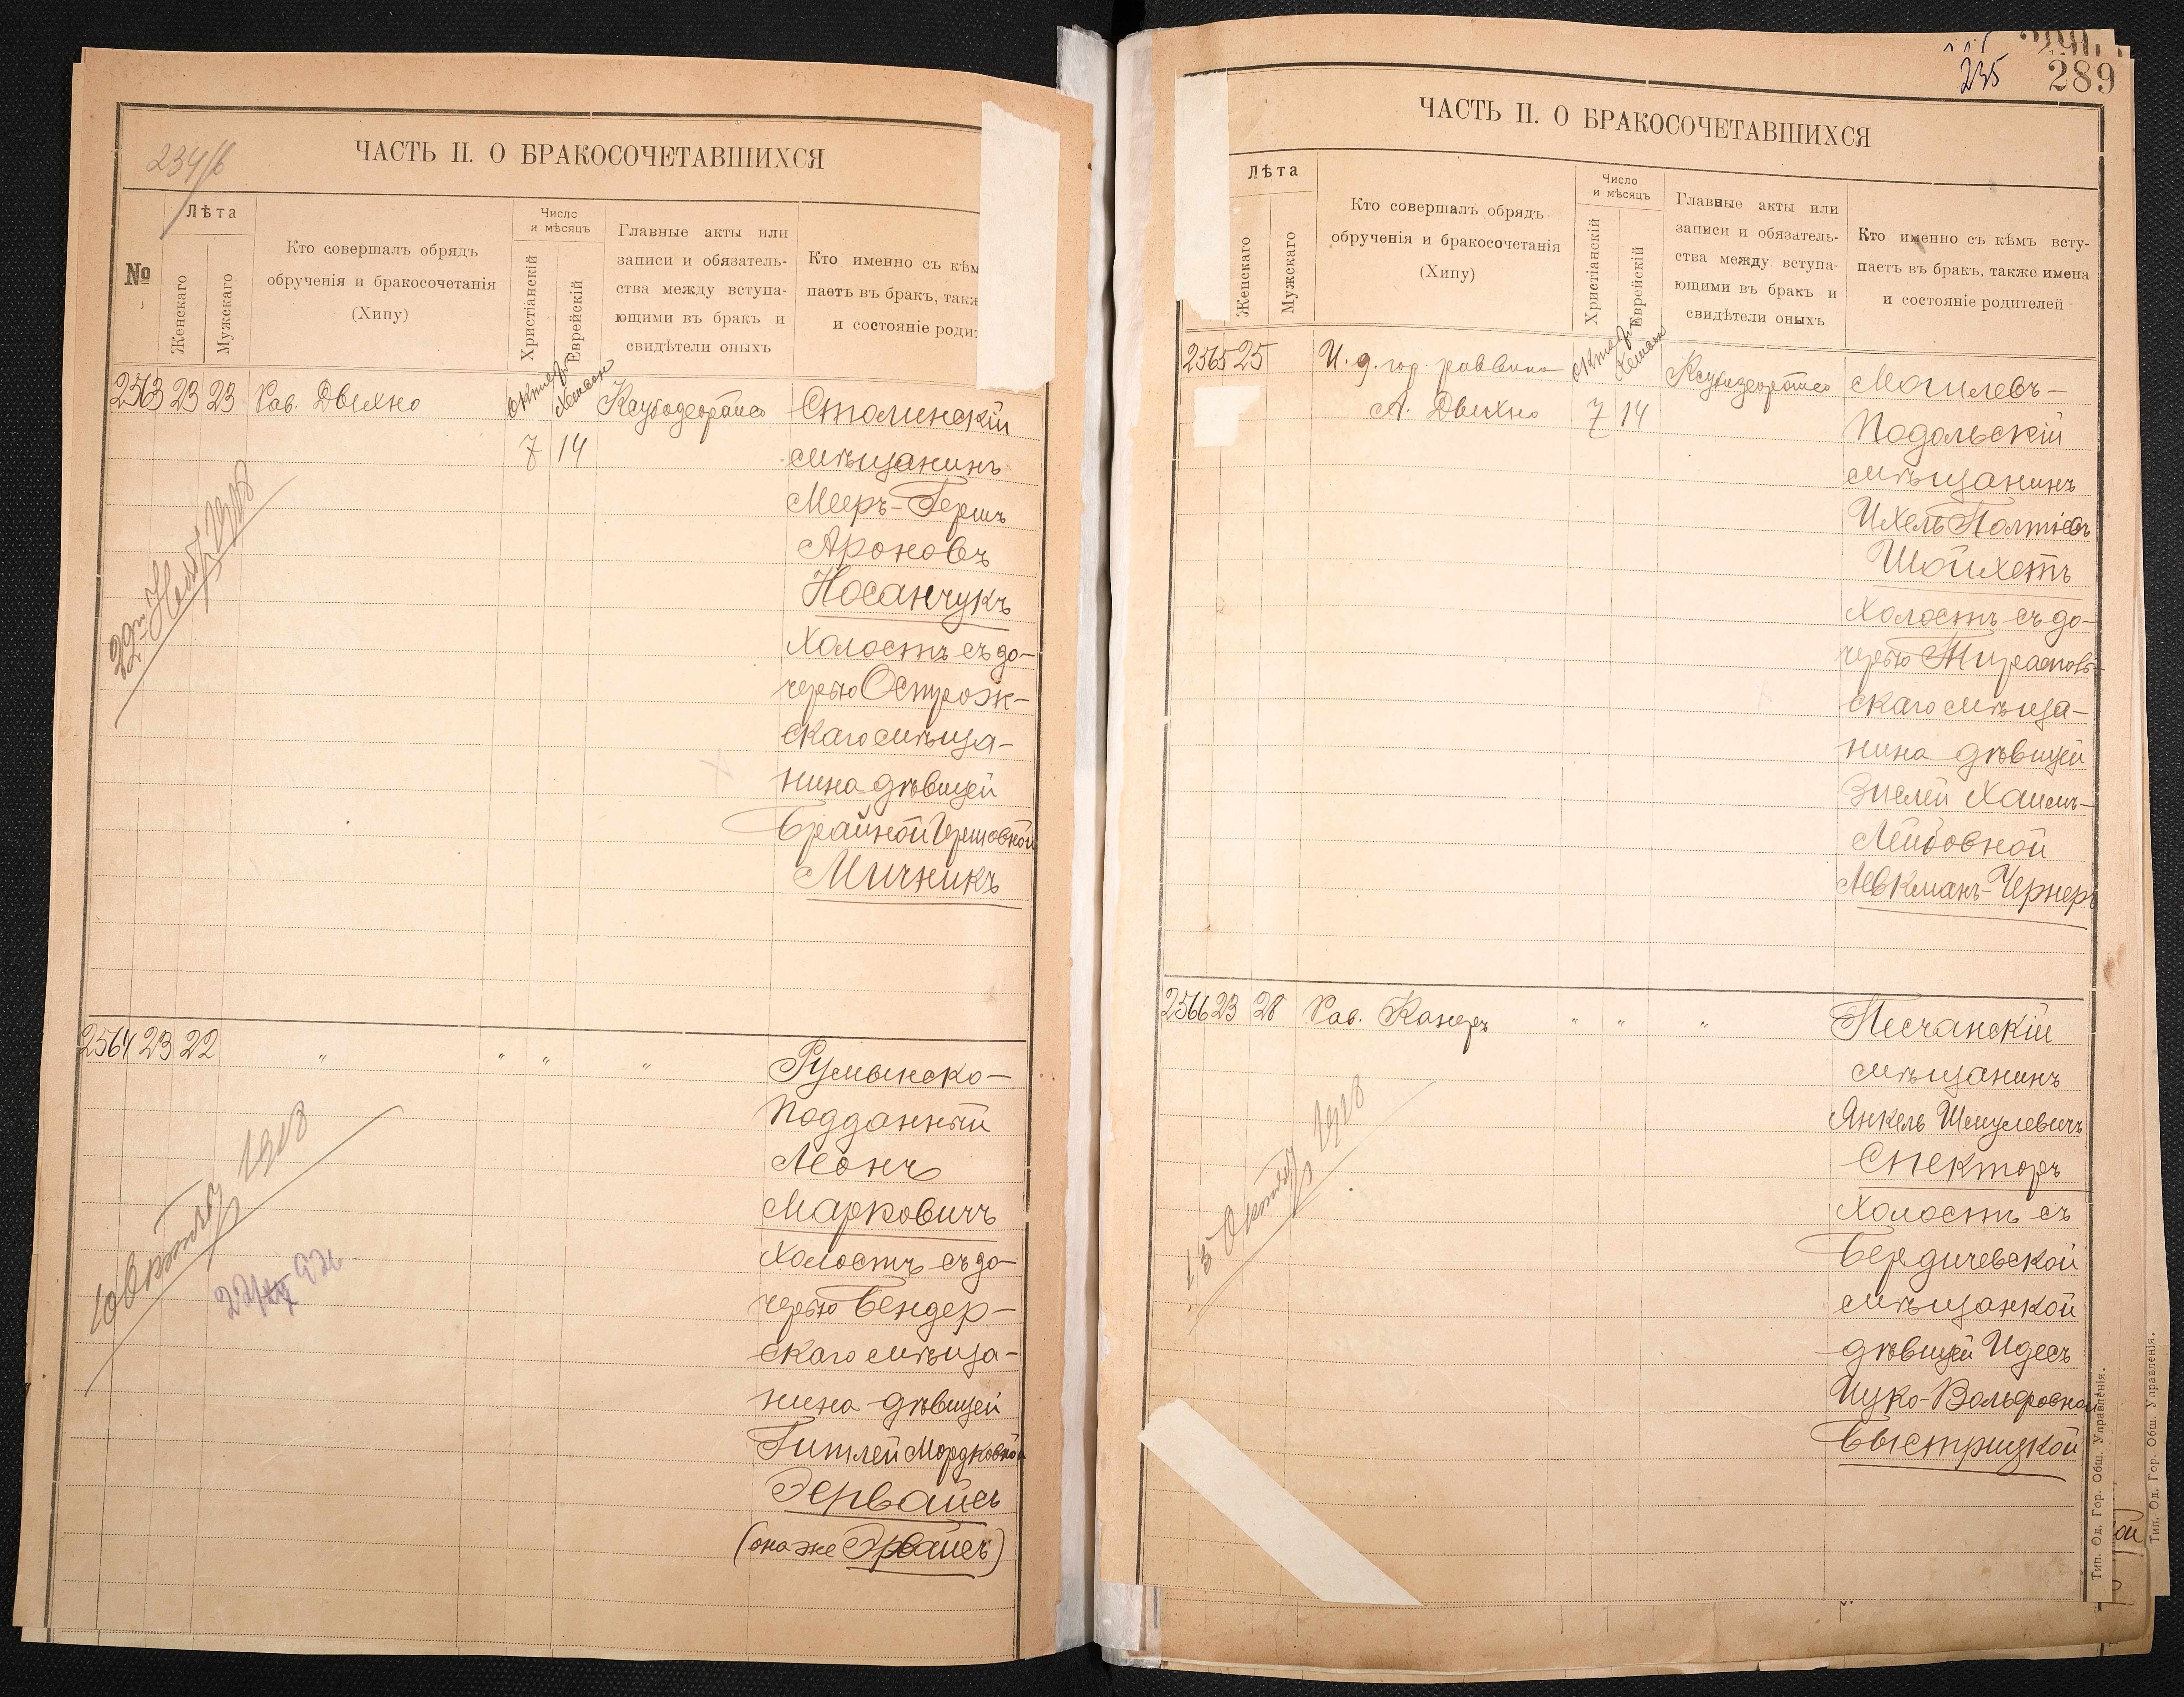 234/б
ЧАСТЬ II. О БРАКОСОЧЕТАВШИХСЯ
№
Лѣта
Женскаго
Мужскаго
Кто совершалъ обрядъ
обрученія и бракосочетанія
(Хипу)
Число
и мѣсяцъ
Христіанскій
Еврейскій
Главные акты или
записи и обязатель-
ства между вступа-
ющими въ бракъ и
свидѣтели оныхъ
Кто именно съ кѣм
паетъ въ бракъ, такж
и состояніе родит
2563 23 23 Рав. Двихно
7 14
Столинскій
мѣщанинъ
Мееръ-Гершъ
Ароновъ
Носанчукъ
холостъ съ до-
черью Острож-
скаго мѣща-
нина дѣвицей
Брайной Гершовной
Мичникъ
1918
2564 23 22 " " " "
Румынско-
подданный
Леонъ
Марковичъ
холостъ съ до-
черью Бендер-
скаго мѣща-
нина дѣвицей
Гитлей Мордковной
Эервайсъ
(она же Эрвайсъ)
10 Октбр 1918
235 289
ЧАСТЬ II. О БРАКОСОЧЕТАВШИХСЯ
Лѣта
Женскаго
Мужскаго
Кто совершалъ обрядъ
обрученія и бракосочетанія
(Хипу)
Число
и мѣсяцъ
Христіанскій
Еврейскій
Главные акты или
записи и обязатель-
ства между вступа-
ющими въ бракъ и
свидѣтели оныхъ
Кто именно съ кѣмъ всту-
паетъ въ бракъ, также имена
и состояніе родителей
2565 25 И. д. гор. раввина
А. Двихно 7 14
Могилевъ-
Подольскій
мѣщанинъ
Ихель Полтіевъ
Шойхетъ
холостъ съ до-
черью Тираспольскаго
скаго мѣща-
нина дѣвицей
Зислей Хаимъ-
Лейбовной
Левкманъ-Чернеръ
2566 23 28 Рав. Канеръ " " "
Песчанскій
мѣщанинъ
Янкель Шмулевичъ
Спекторъ
холостъ съ
Бердичевской
мѣщанкой
дѣвицей Идесъ
Ицко-Вольфовной
Быстрицкой
15 Октбр 1918
Тип. Од. Гор. Общ. Управленія.
Тип. Од. Гор. Общ. Управленія.